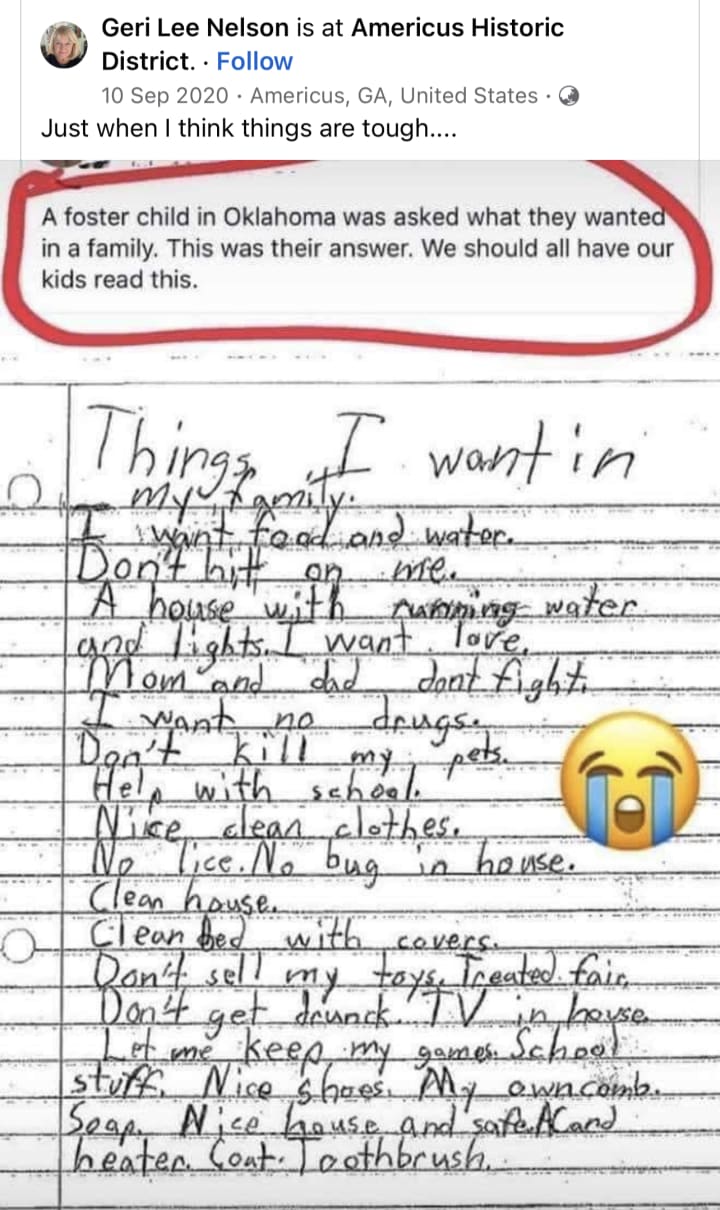 Geri Lee Nelson is at Americus Historic
District. · Follow
10 Sep 2020 · Americus, GA, United States ·
Just when I think things are tough....
A foster child in Oklahoma was asked what they wanted
in a family. This was their answer. We should all have our
kids read this.
Things I want in
my family.
I want food and water.
Don't hit on me.
A house with running water
and lights. I want love.
Mom and dad dont fight.
I want no drugs.
Don't kill my pets.
Help with school.
Nice clean clothes.
No lice. No bug in house.
Clean house.
Clean bed with covers.
Don't sell my toys. Treated fair.
Don't get drunck. TV in house.
Let me keep my games. School
stuff. Nice shoes. My own comb.
Soap. Nice house and safe. AC and
heater. Coat. Toothbrush.